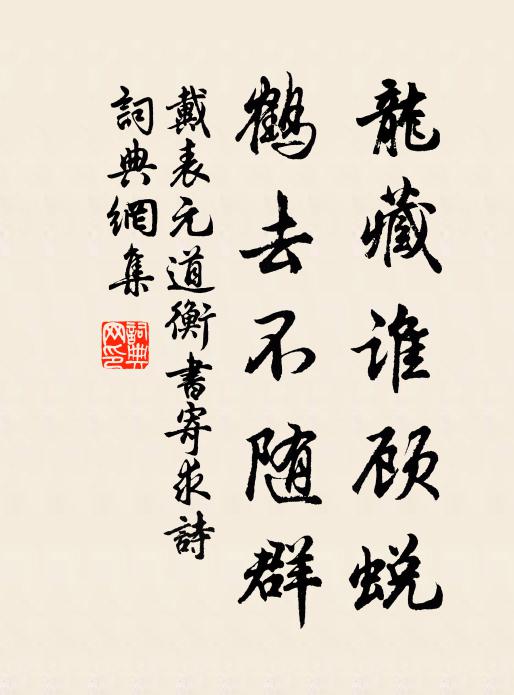 龍藏谁顾蜕
鶴去不随群
戴表元道衡書寄求詩
詞典網集
詞典网印